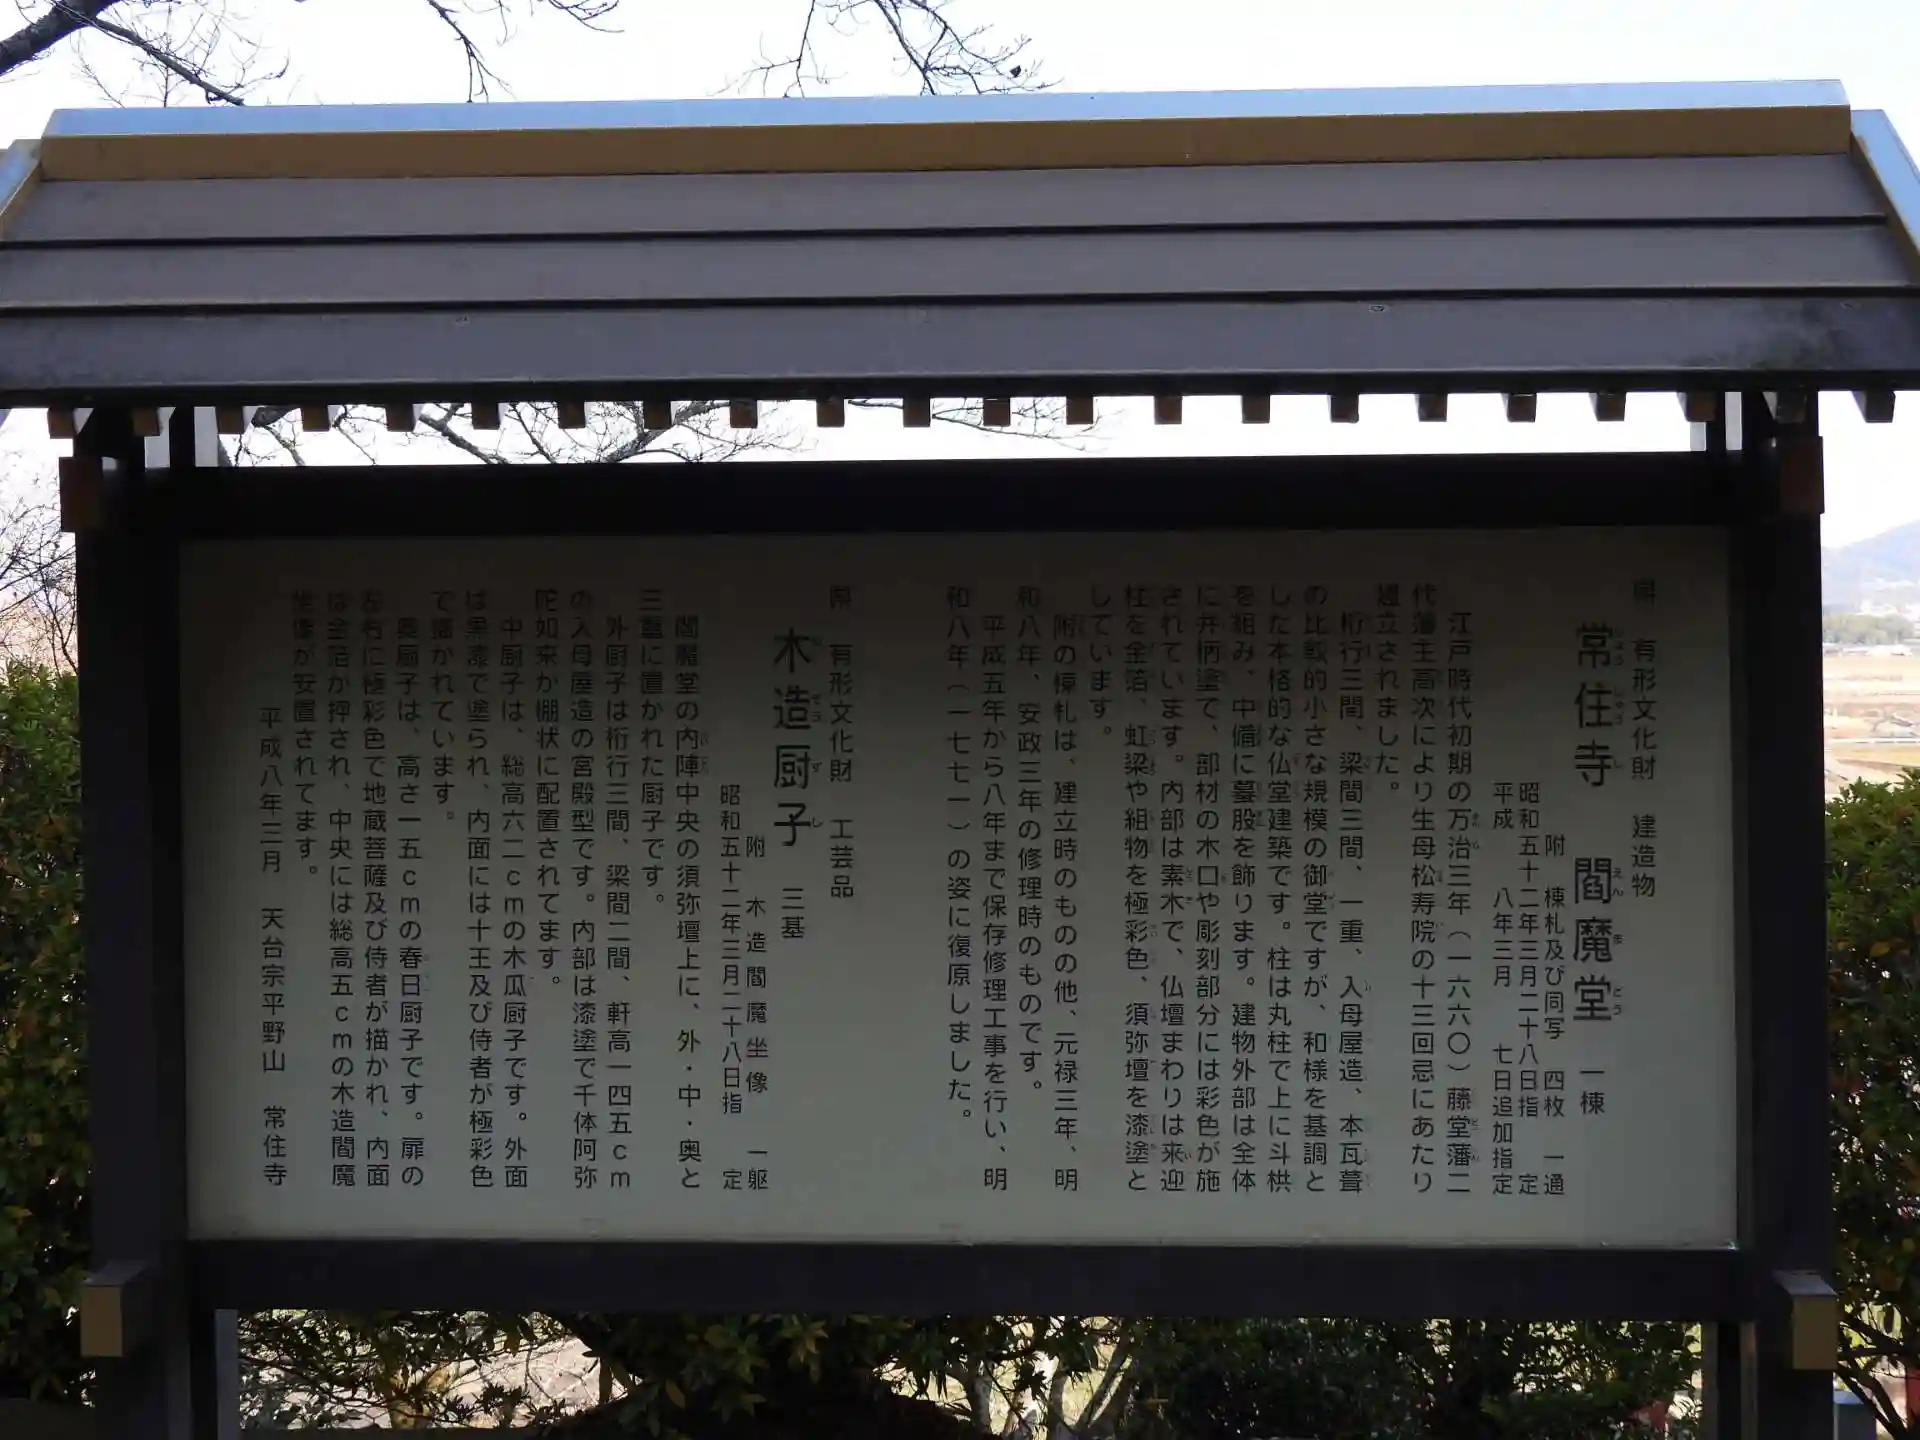 県　有形文化財　建造物
常住寺　閻魔堂　一棟
附　棟札及び同写　四枚　一通
昭和五十二年三月二十八日指　定
平成　　八年三月　　七日追加指定
江戸時代初期の万治三年（一六六〇）藤堂藩二
代藩主高次により生母松寿院の十三回忌にあたり
建立されました。
桁行三間、梁間三間、一重、入母屋造、本瓦葺
の比較的小さな規模の御堂ですが、和様を基調と
した本格的な仏堂建築です。柱は丸柱で上に斗栱
を組み、中備に蟇股を飾ります。建物外部は全体
に弁柄塗で、部材の木口や彫刻部分には彩色が施
されています。内部は素木で、仏壇まわりは来迎
柱を金箔、虹梁や組物を極彩色、須弥壇を漆塗と
しています。
附の棟札は、建立時のものの他、元禄三年、明
和八年、安政三年の修理時のものです。
平成五年から八年まで保存修理工事を行い、明
和八年（一七七一）の姿に復原しました。
県　有形文化財　工芸品
木造厨子　三基
附　木造閻魔坐像　一躯
昭和五十二年三月二十八日指　定
閻魔堂の内陣中央の須弥壇上に、外・中・奥と
三重に置かれた厨子です。
外厨子は桁行三間、梁間二間、軒高一四五cm
の入母屋造の宮殿型です。内部は漆塗で千体阿弥
陀如来が棚状に配置されてます。
中厨子は、総高六二cmの木瓜厨子です。外面
は黒漆で塗られ、内面には十王及び侍者が極彩色
で描かれています。
奥厨子は、高さ一五cmの春日厨子です。扉の
左右に極彩色で地蔵菩薩及び侍者が描かれ、内面
は金箔が押され、中央には総高五cmの木造閻魔
坐像が安置されてます。
平成八年三月　天台宗平野山　常住寺